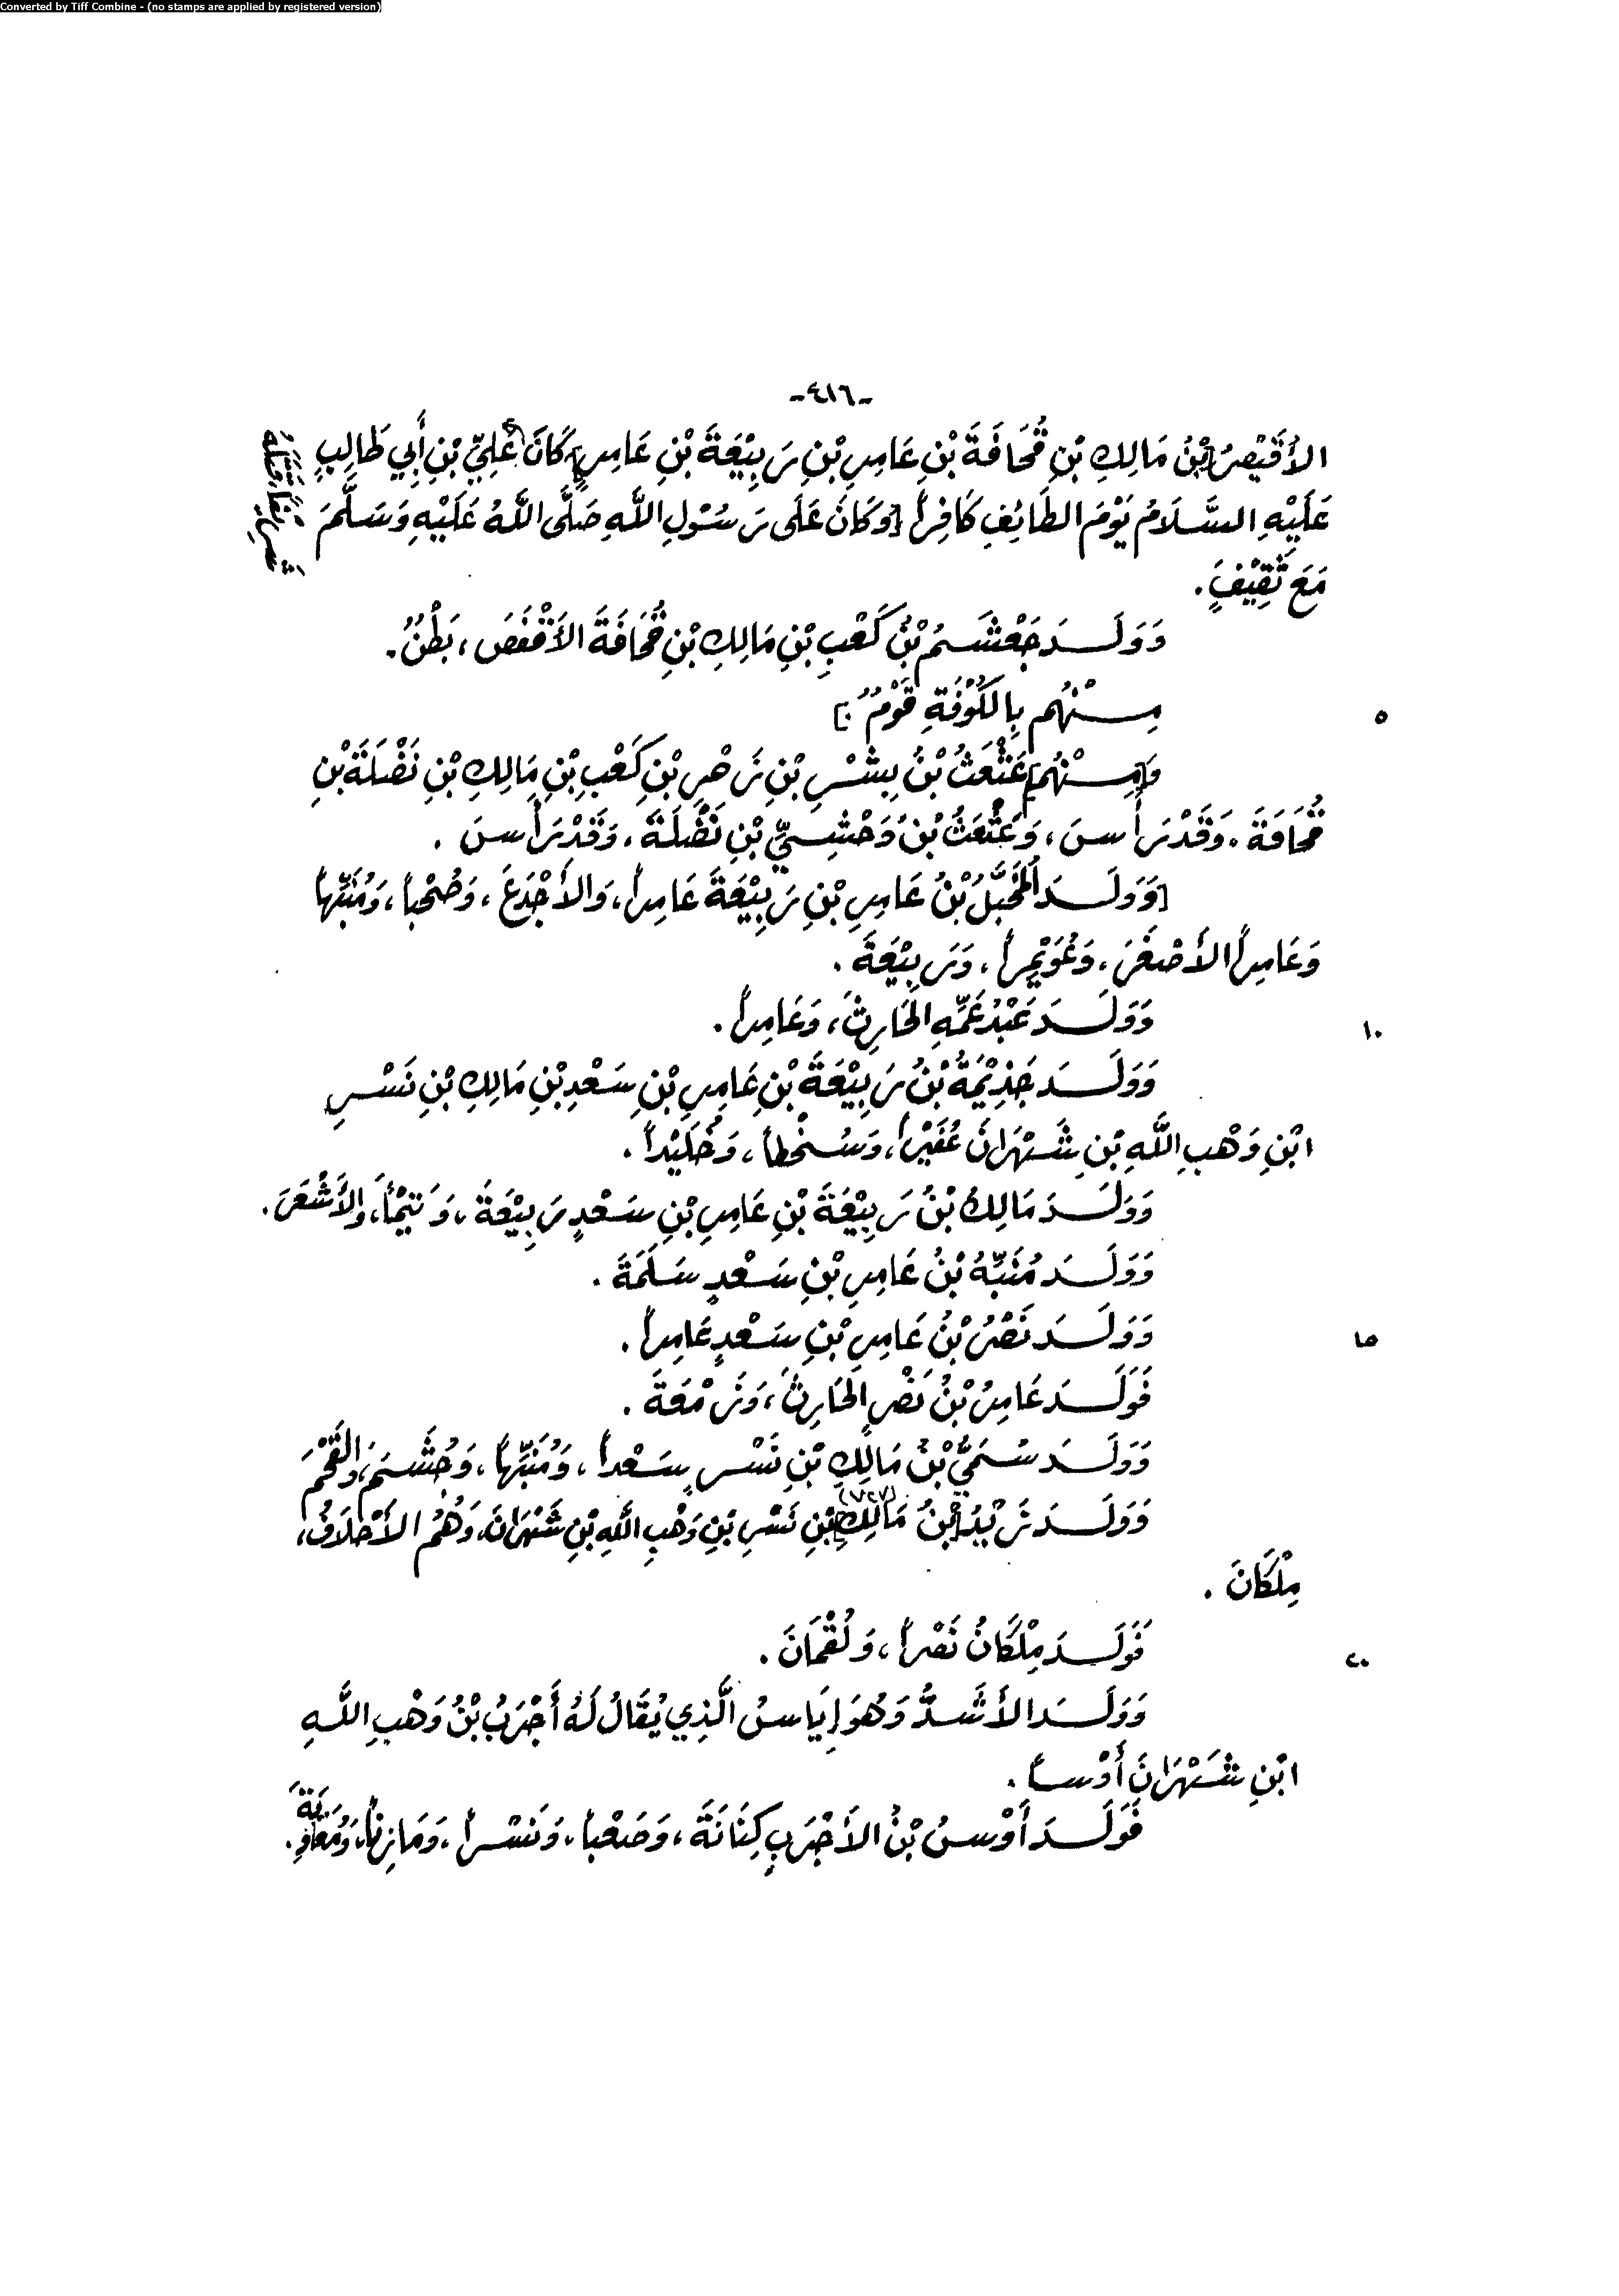 Converted by Tiff Combine - (no stamps are applied by registered version)
-٤١٦-
الأُقَيْصِرُ [بْنُ مَالِكِ بْنِ قُحَافَةَ بْنِ عَامِرِ بْنِ رَبِيْعَةَ بْنِ عَامِرٍ] كَانَ عَلِيّ بْنِ أَبِي طَالِبٍ
عَلَيْهِ السَّلَامُ يَوْمَ الطَّائِفِ كَافِراً [وَكَانَ عَلَى رَسُوْلِ اللَّهِ صَلَّى اللَّهُ عَلَيْهِ وَسَلَّمَ
مَعَ ثَقِيْفٍ.
وَوَلَـدَ جَعْشَـمُ بْنُ كَعْبِ بْنِ مَالِكِ بْنِ قُحَافَةَ الأَقْفَصَ، بَطْنٌ.
مِـنْهُم بِالكُوْفَةِ قَوْمٌ.]
٥
وَ[مِـنْهُم] عَثْعَثُ بْنُ بِشْرِ بْنِ زَحْرِ بْنِ كَعْبِ بْنِ مَالِكِ بْنِ نَضْلَةَ بْنِ
قُحَافَةَ. وَقَدْ رَأَسَ، وَعَثْعَثُ بْنُ وَحْشِـيِّ بْنِ نَضْلَةَ، وَقَدْ رَأَسَ.
[وَوَلَـدَ المُخَبَّلُ بْنُ عَامِرِ بْنِ رَبِيْعَةَ عَامِراً، وَالأَجْدَعَ، وَصُحْباً، وَمُنَبِّهاً
وَعَامِراً الأَصْغَرَ، وَعُوَيْمِراً، وَرَبِيْعَةَ.
وَوَلَـدَ عَبْدُ عَمِّهِ الحَارِثَ، وَعَامِراً.
١٠
وَوَلَـدَ جَذِيْمَةُ بْنُ رَبِيْعَةَ بْنِ عَامِرِ بْنِ سَعْدِ بْنِ مَالِكِ بْنِ نَسْـرِ
ابْنِ وَهْبِ اللَّهِ بْنِ شَـهْرَانَ عُفَيْراً، وَسُـخْطاً، وَخُلَيْداً.
وَوَلَـدَ مَالِكُ بْنُ رَبِيْعَةَ بْنِ عَامِرِ بْنِ سَـعْدٍ رَبِيْعَةَ، وَتَيْماً، وَالأَشْعَرَ.
وَوَلَـدَ مُنَبِّهُ بْنُ عَامِرِ بْنِ سَـعْدٍ سَـلَمَةَ.
وَوَلَـدَ نَصْرُ بْنُ عَامِرِ بْنِ سَـعْدٍ عَامِراً.
١٥
فَوَلَـدَ عَامِرُ بْنُ نَصْرٍ الحَارِثَ، وَزَمْعَةَ.
وَوَلَـدَ سُـمَيُّ بْنُ مَالِكِ بْنِ نَسْـرٍ سَـعْداً، وَمُنَبِّهاً، وَجُشَـمَ، وَالقَحْمَ
(٧٢٧)
وَوَلَـدَ زَيْدُ [بْنُ مَالِكِ] بْنِ نَسْرِ بْنِ وَهْبِ اللَّهِ بْنِ شَهْرَانَ، وَهُمُ الأَحْلَافُ،
مِلْكَانَ.
فَوَلَـدَ مِلْكَانُ نَصْراً، وَلُقْمَانَ.
٢٠
وَوَلَـدَ الأَشَـدُّ وَهُوَ إِيَاسُ الَّذِي يُقَالُ لَهُ أَجْرَبُ بْنُ وَهْبِ اللَّـهِ
ابْنِ شَـهْرَانَ أَوْسـاً.
فَوَلَـدَ أَوْسُ بْنُ الأَجْرَبِ كِنَانَةَ، وَصَعْباً، وَنَسْـراً، وَمَازِناً، وَمُعَاوِيَةَ.